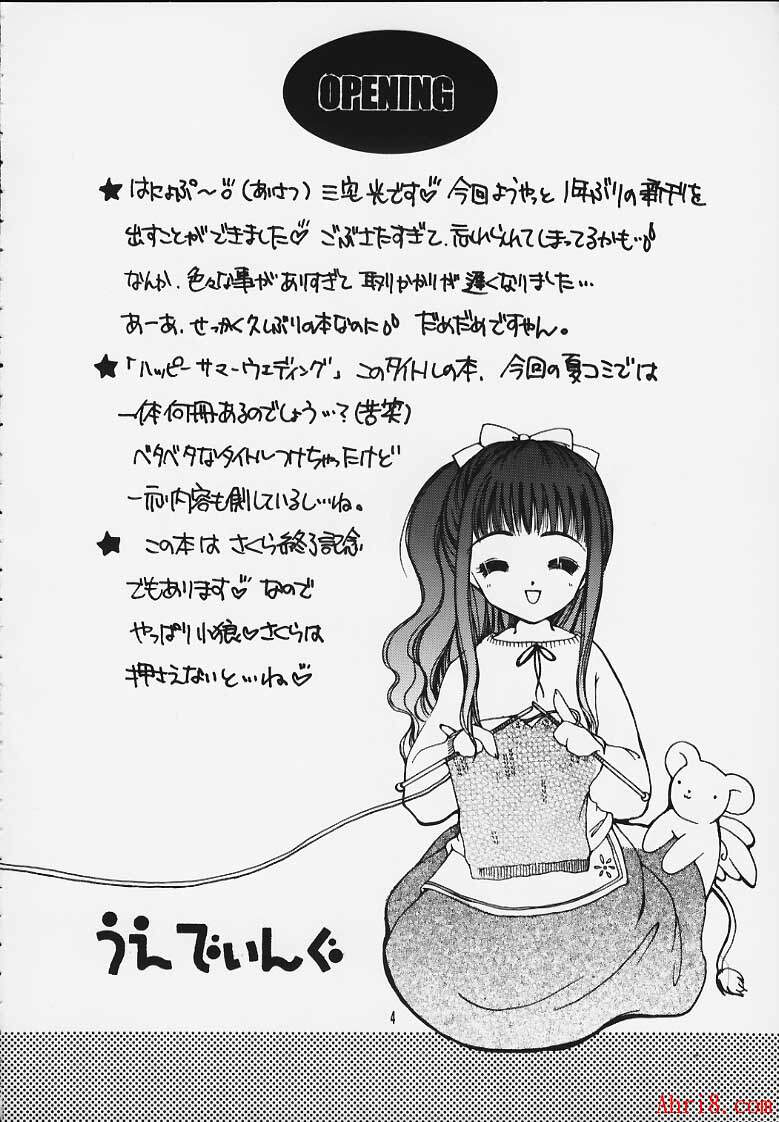 OPENING
★はにょぷ〜(あいさつ)三宅光です♡今回ようやっと1年ぶりの新刊を
出すことができました♡ごぶさたすぎて、忘れられてしまってるかも…
なんか、色々な事がありすぎて取りかかりが遅くなりました…
あーあ、せっかく久しぶりの本なのに だめだめですやん。
★「ハッピーサマーウエディング」このタイトルの本、今回の夏コミでは
一体何冊あるのでしょう…?(苦笑)
ベタベタなタイトルつけちゃったけど
一応内容も即しているし…ね。
★この本はさくら終了記念
でもあります♡なので
やっぱり小狼♡さくらは
押さえないと…ね♡
うえでぃんぐ
4
Ahri8.com